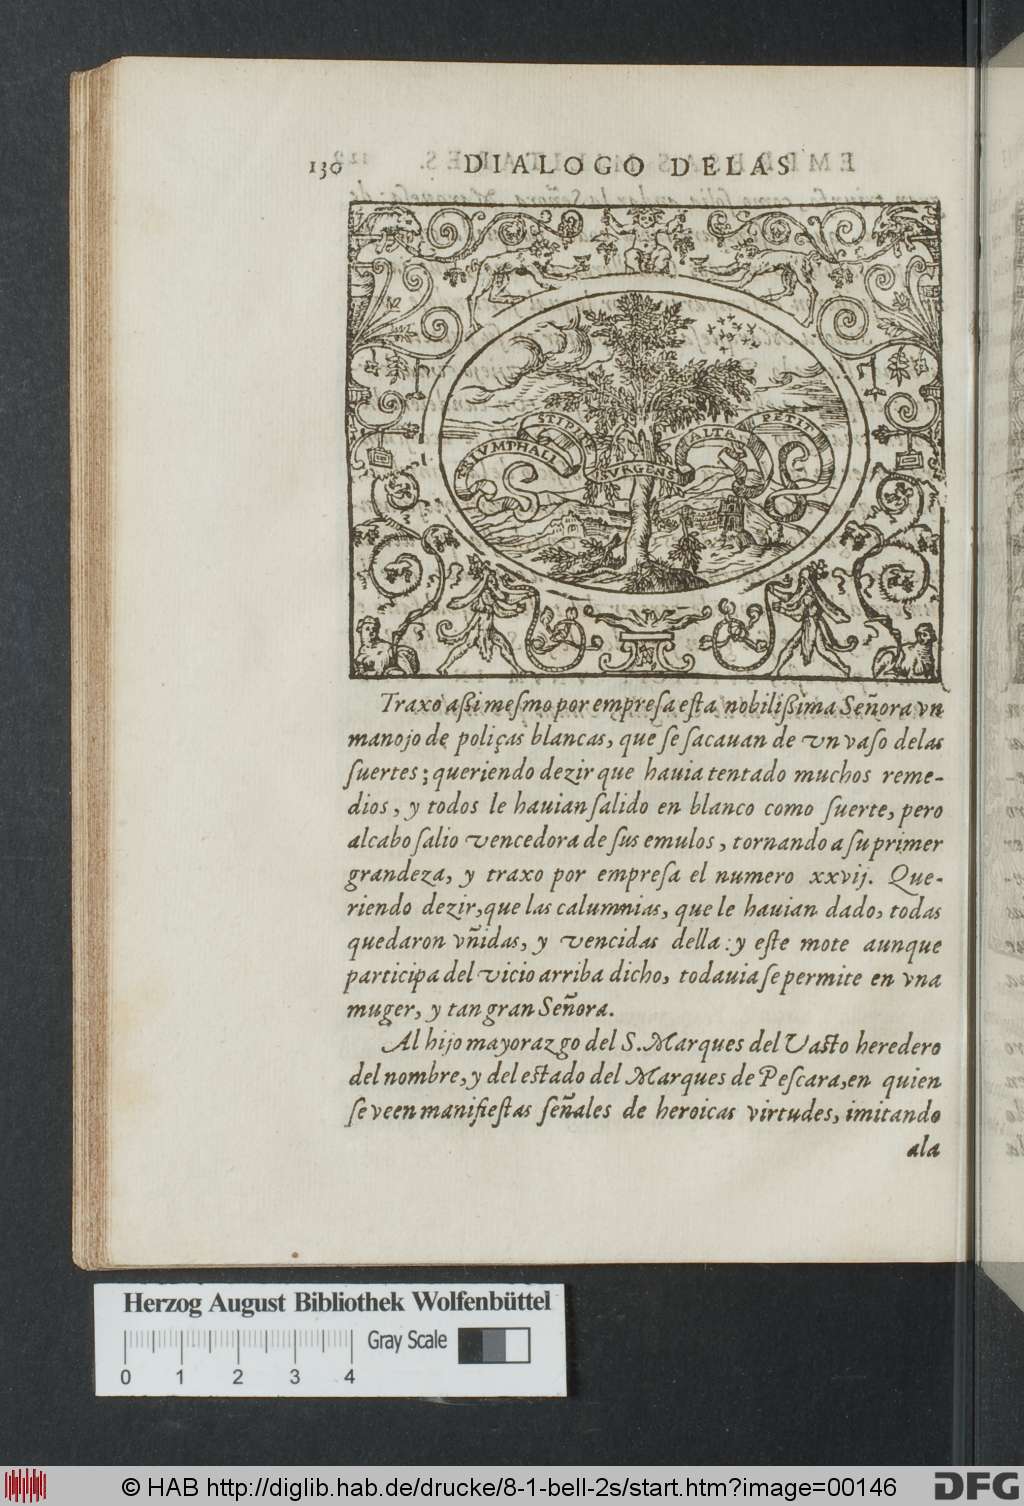 130 DIALOGO DELAS
TRIVMPHALI
STIPI
SVRGENS
ALTA
PETIT
Traxo aßi meſmo por empreſa eſta nobilißima Señora vn
manojo de poliças blancas, que ſe ſacauan de vn vaſo delas
ſuertes; queriendo dezir que hauia tentado muchos reme-
dios, y todos le hauian ſalido en blanco como ſuerte, pero
alcabo ſalio vencedora de ſus emulos, tornando a ſu primer
grandeza, y traxo por empreſa el numero xxvij. Que-
riendo dezir, que las calumnias, que le hauian dado, todas
quedaron vñidas, y vencidas della: y eſte mote aunque
participa del vicio arriba dicho, todauia ſe permite en vna
muger, y tan gran Señora.
Al hijo mayorazgo del S. Marques del Vasto heredero
del nombre, y del estado del Marques de Peſcara, en quien
ſe veen manifieſtas ſeñales de heroicas virtudes, imitando
ala
Herzog August Bibliothek Wolfenbüttel
Gray Scale
0 1 2 3 4
© HAB http://diglib.hab.de/drucke/8-1-bell-2s/start.htm?image=00146
DFG